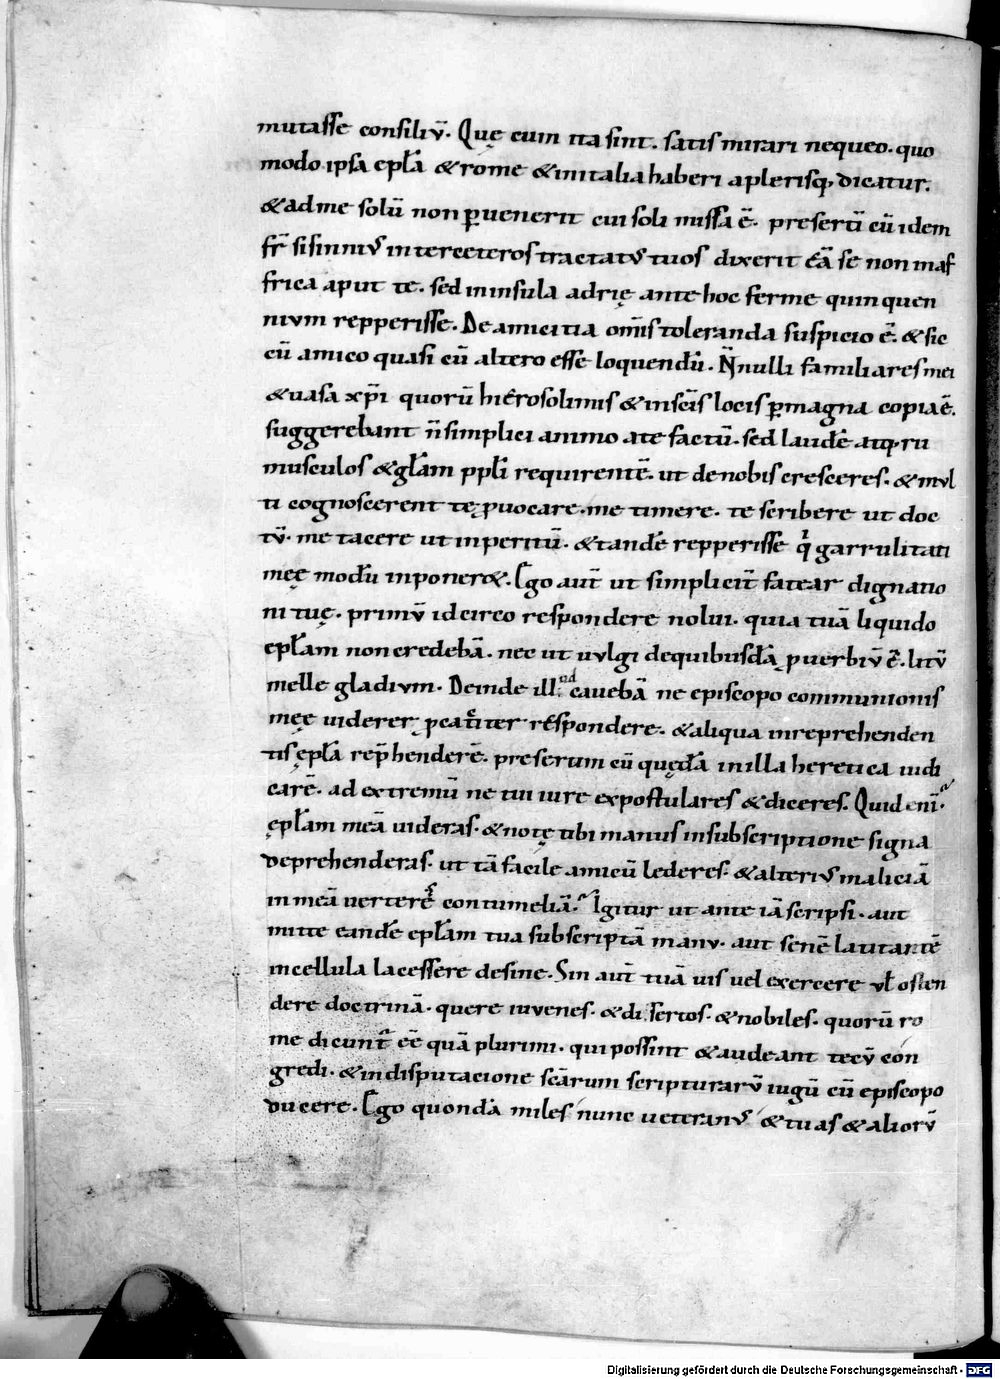 mutasse consiliū. Quę cum ita sint. satis mirari nequeo. quo
modo ipsa epl̄a & rome & in italia haberi a plerisq; dicatur.
& ad me solū non ꝑuenerit cui soli missa ē. presertī cū idem
fr̄ sisinnius inter ceteros tractatus tuos dixerit eā se non in af
frica aput te. sed in insula adrię ante hoc ferme quinquen
nium repperisse. De amicitia om̄is toleranda suspicio ē. & sic
cū amico quasi cū altero esse loquendū. N̄nulli familiares mei
& uasa xp̄i quorū hierosolimis & in scīs locis ꝑmagna copia ē.
suggerebant n̄ simplici animo a te factū. sed laudē atq; ru
musculos & gl̄am ppl̄i requirentē. ut de nobis cresceres. & mul
ti cognoscerent te ꝓuocare. me timere. te scribere ut doc
tū. me tacere ut inperitū. & tandē repperisse q̄ garrulitati
męę modū inponer&. Ego aut̄ ut simplicit̄ fatear dignatio
ni tuę. primū idcirco respondere nolui. quia tuā liquido
epl̄am non credebā. nec ut uulgi de quibusdā ꝓuerbiū ē. litū
melle gladium. Deinde illud cauebā ne episcopo communionis
męę uiderer ꝓcat̄iter respondere. & aliqua in reprehenden
tis epl̄a rep̄henderē. presertim cū quędā in illa heretica iudi
carē. ad extremū ne tu iure expostulares & diceres. Quid enī.
ępl̄am meā uideras. & notę tibi manus in subscriptione signa
deprehenderas. ut tā facile amicū lederes. & alterius maliciā
in meā verteres contumeliā. Igitur ut ante iā scripsi. aut
mitte eandē epl̄am tua subscriptā manu. aut senē latitantē
in cellula lacessere desine. Sin aut̄ tuā uis uel exercere ul̄ osten
dere doctrinā. quere iuvenes. & disertos. & nobiles. quorū ro
me dicunt̄ eē quā plurimi. qui possint & audeant tecū con
gredi. & in disputacione scārum scripturarū iugū cū episcopo
ducere. Ego quondā miles nunc veteranus & tuas & aliorū
Digitalisierung gefördert durch die Deutsche Forschungsgemeinschaft - DFG